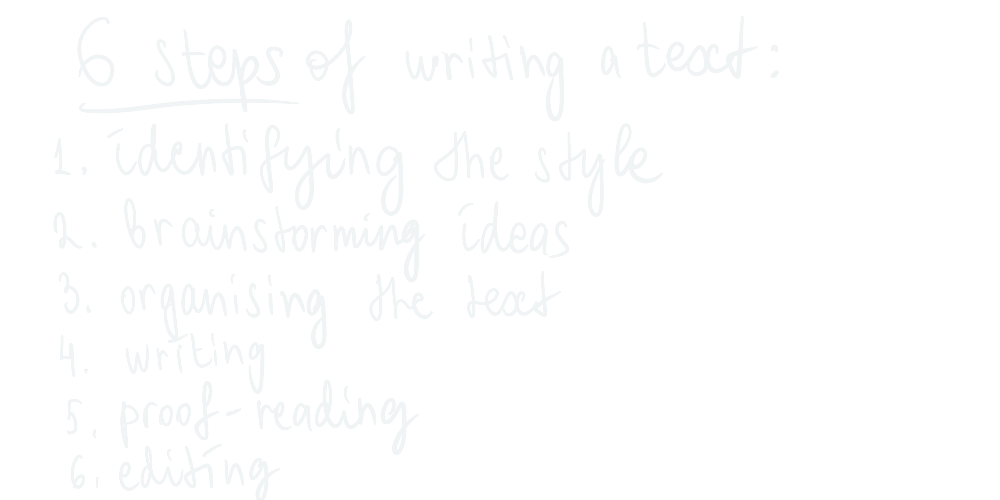 6 steps of writing a text:
1. identifying the style
2. brainstorming ideas
3. organising the text
4. writing
5. proof-reading
6. editing